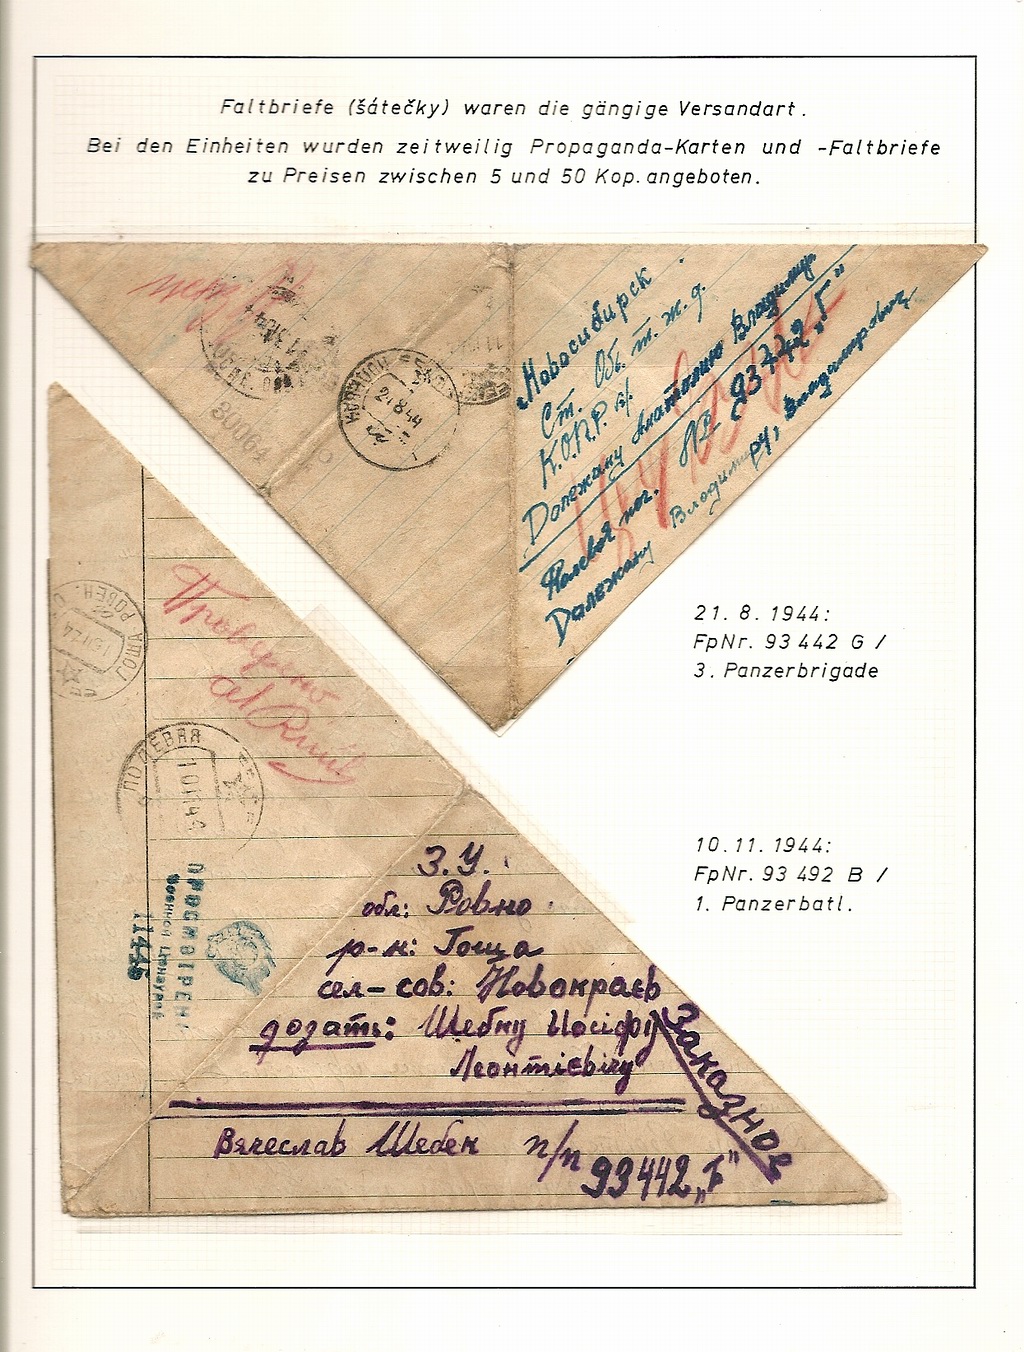 Faltbriefe (šátečky) waren die gängige Versandart.
Bei den Einheiten wurden zeitweilig Propaganda-Karten und -Faltbriefe
zu Preisen zwischen 5 und 50 Kop. angeboten.
Новосибирск
Ст. Об. т. ж. д.
К.О.П.Р.
Далежану Анатолию Владимир
Полевая поч. №
Далежану Владимиру, Владимировичу
21.8.44
21. 8. 1944:
FpNr. 93 442 G /
3. Panzerbrigade
Проверено
ПОЛЕВАЯ
ПРОСМОТРЕНО
Военной Цензурой
11445
10. 11. 1944:
FpNr. 93 492 B /
1. Panzerbatl.
З.У.
обл: Ровно
р-н: Гоща
сел-сов: Новокраєв
дозать: Шебну Иосіфу
Леонтієвічу
Заказное
Вячеслав Шебен п/п
93442 „Б"